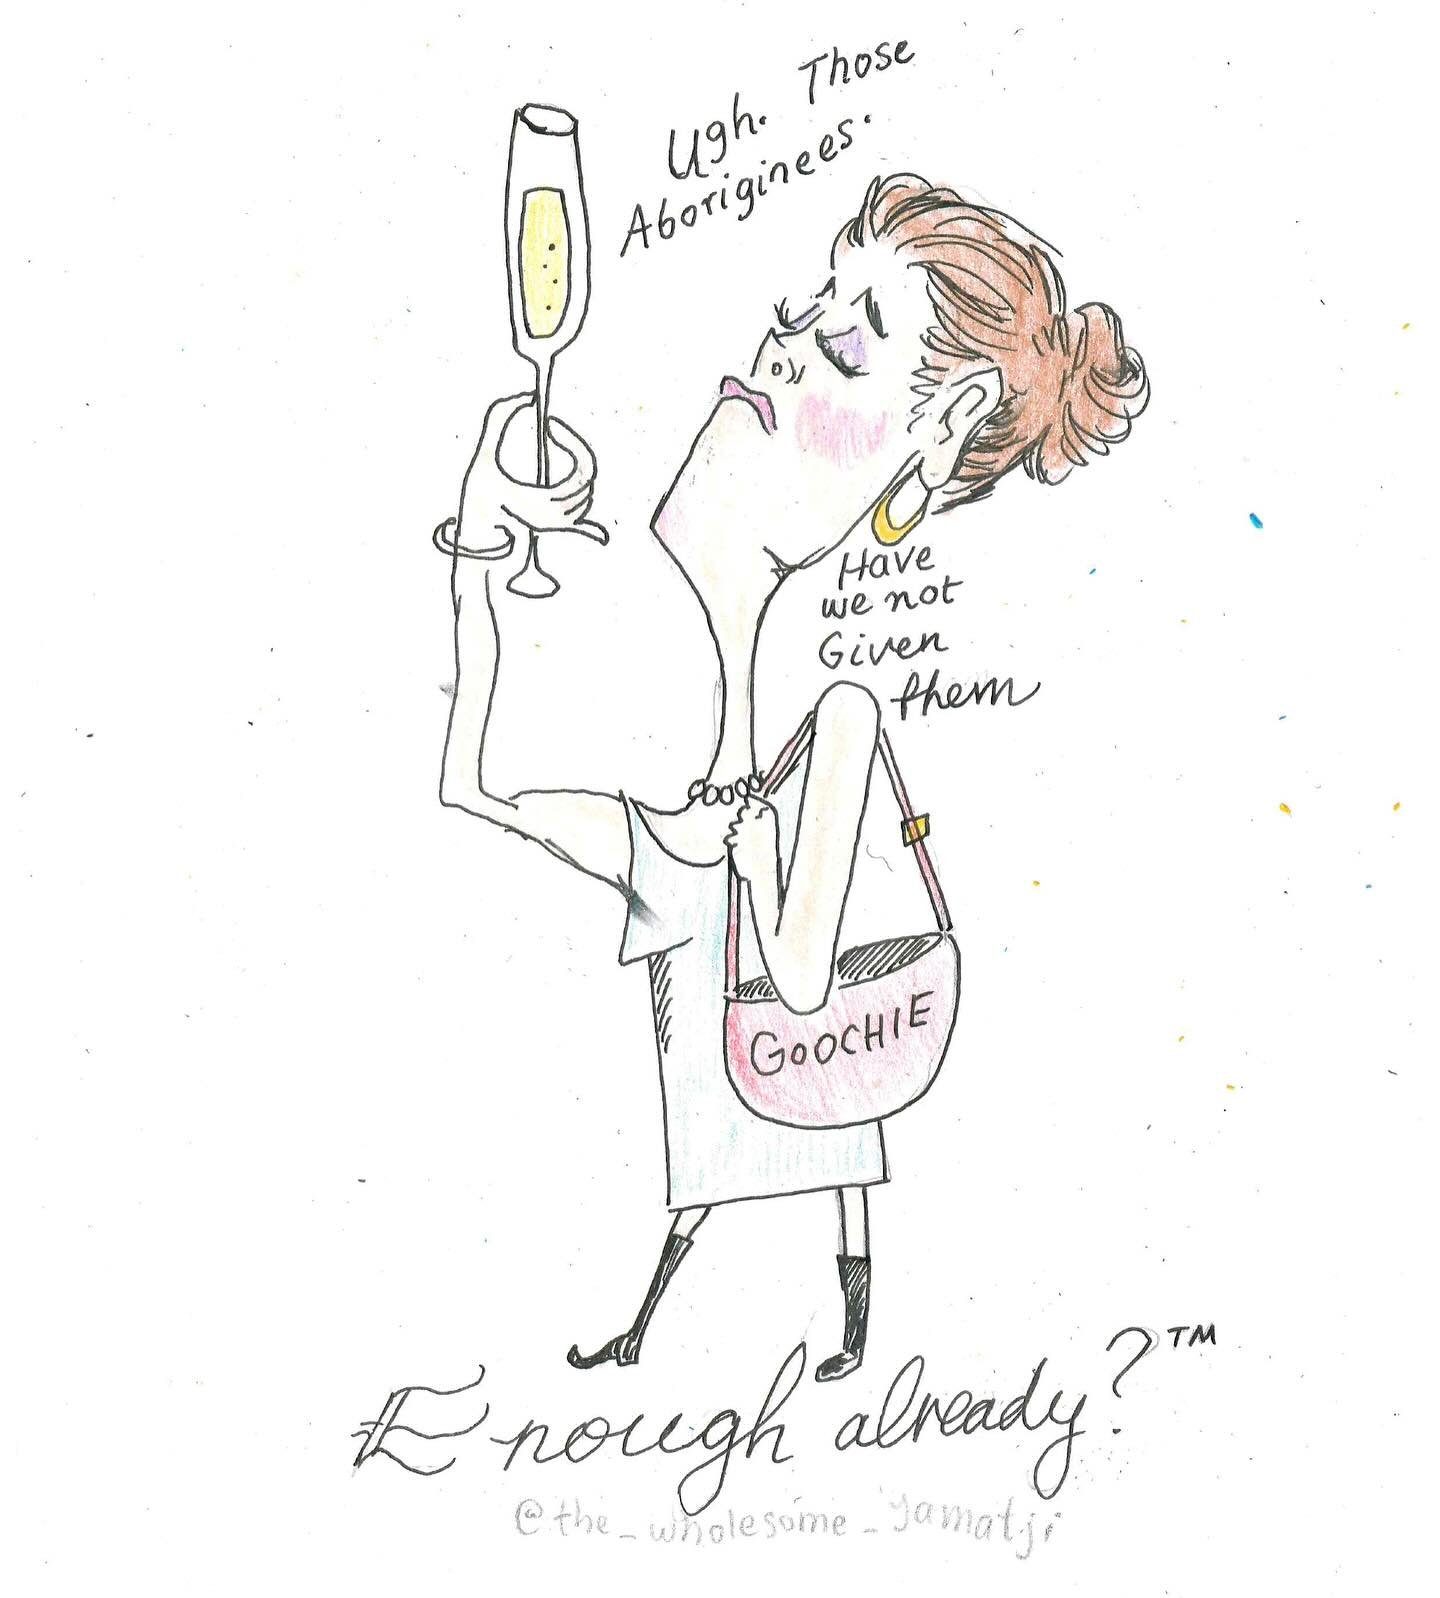 Ugh. Those
Aboriginees.
Have
we not
Given
them
GOOCHIE
Enough already?™
@the_wholesome_Yamatji